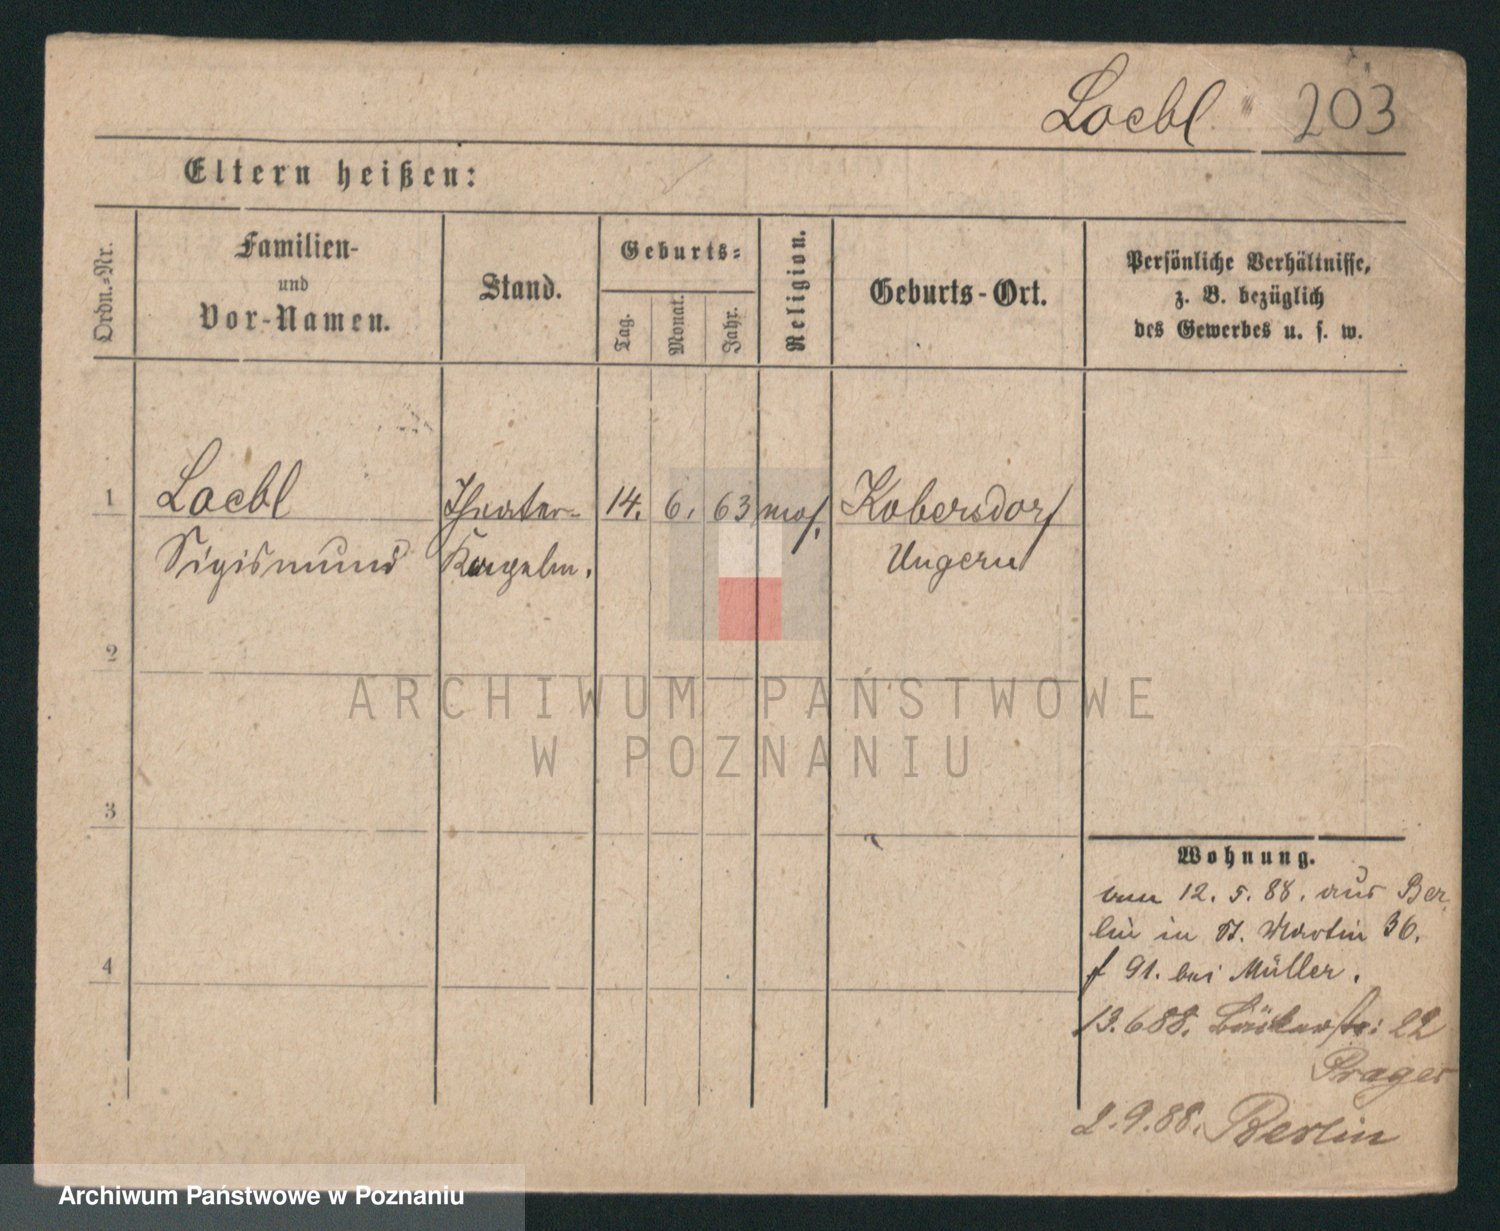 Loebl " 203
Eltern heißen:
Ordn.-Nr.
Familien-
und
Vor-Namen.
Stand.
Geburts-
Tag.
Monat.
Jahr.
Religion.
Geburts-Ort.
Persönliche Verhältnisse,
z. B. bezüglich
des Gewerbes u. s. w.
1 Loebl Theater- 14. 6. 63 mos. Kobersdorf
Sigismund Kapelm. Ungern
2
3
4
Wohnung.
12. 5. 88. aus Ber
lin in St. Martin 36.
91. bei Müller.
13.6 88. Bäckerstr: 22
Prager
2.9.88. Berlin
ARCHIWUM PAŃSTWOWE
W POZNANIU
Archiwum Państwowe w Poznaniu